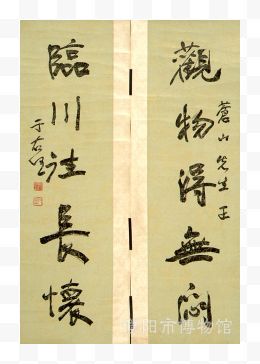 觀物得無悶
蒼山先生正
臨川註長懷
于右任
阳市博物馆